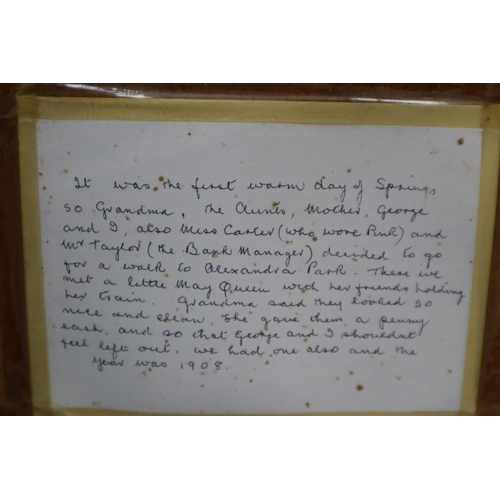 It was the first warm day of Springs
so Grandma, the Aunts, Mother, George
and I, also Miss Carter (who wore Pink) and
Mr Taylor (the Bank Manager) decided to go
for a walk to Alexandra Park. There we
met a little May Queen with her friends holding
her train. Grandma said they looked so
nice and clean. She gave them a penny
each, and so that George and I shouldn't
feel left out, we had one also and the
year was 1908.